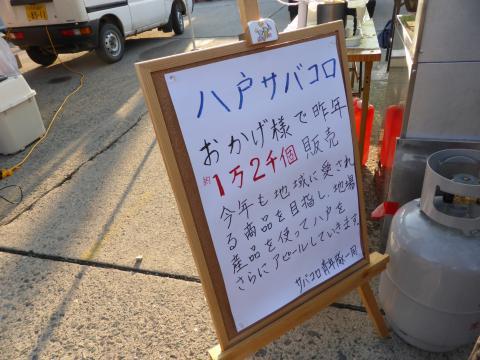 八戸サバコロ
おかげ様で昨年
約1万2千個販売
今年も地域に愛され
る商品を目指し、地場
産品を使って八戸を
さらにアピールしていきます。
サバコロ青年隊一同